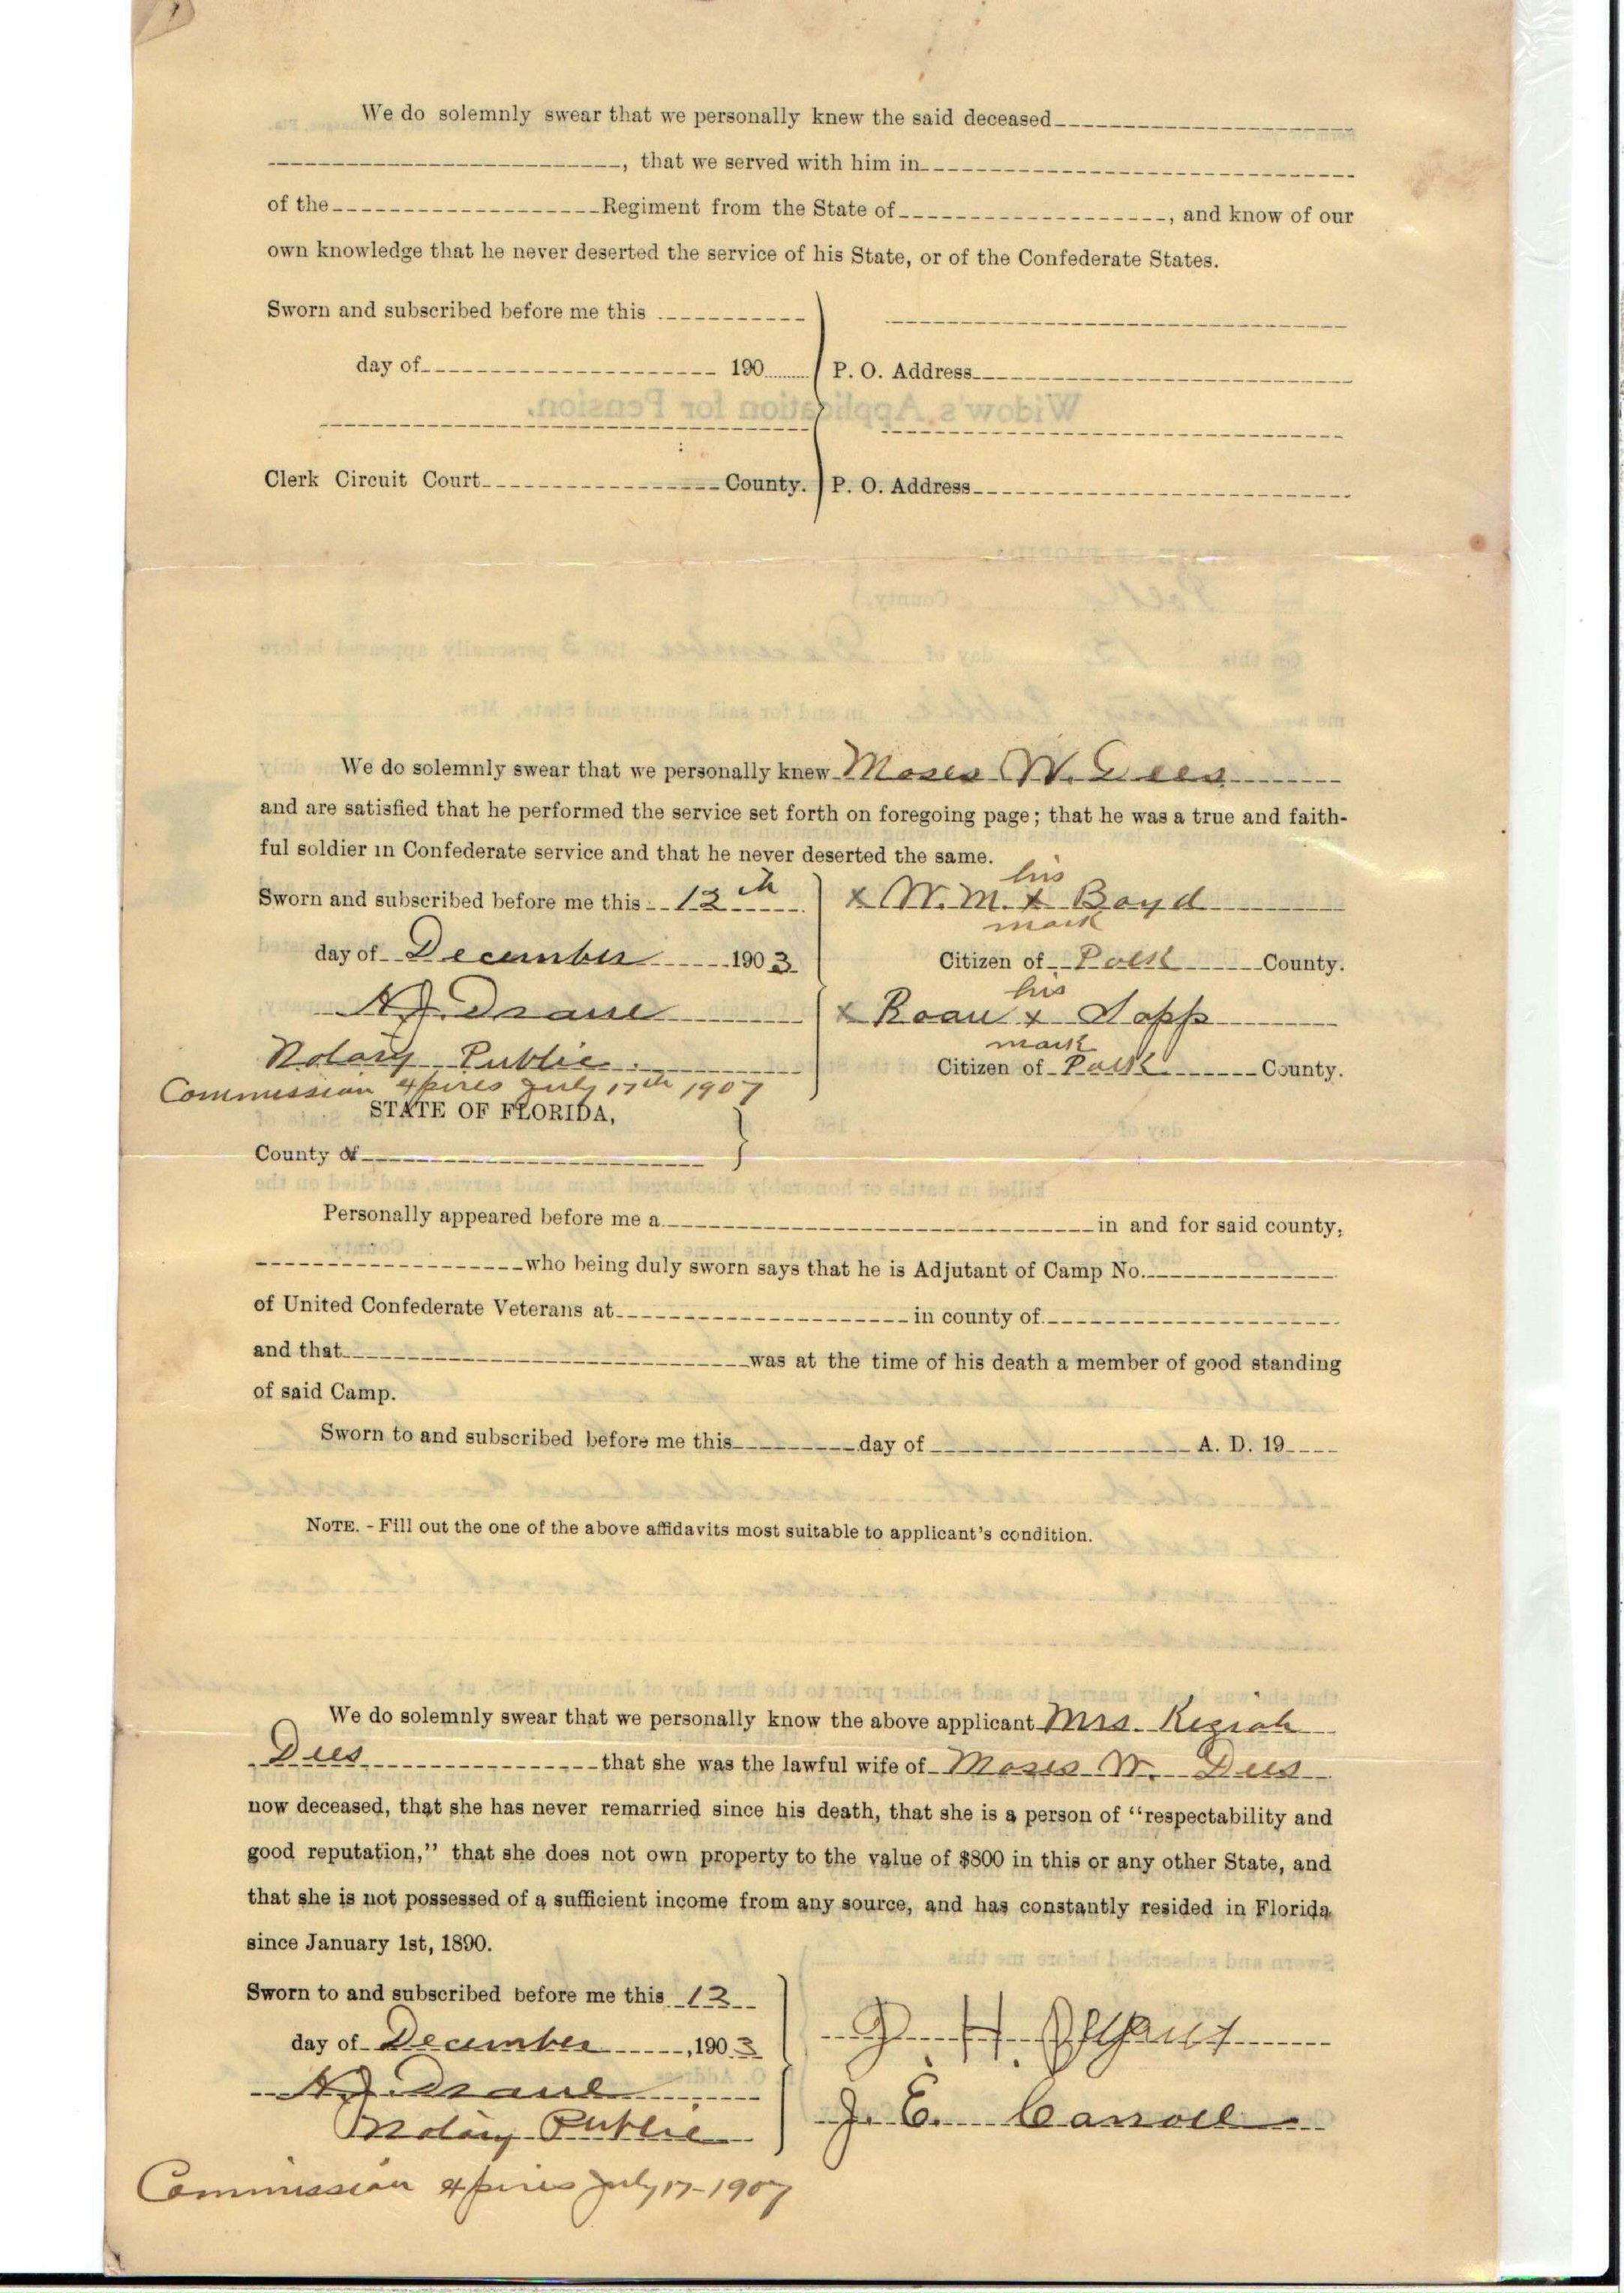 We do solemnly swear that we personally knew the said deceased
, that we served with him in
of the Regiment from the State of , and know of our
own knowledge that he never deserted the service of his State, or of the Confederate States.
Sworn and subscribed before me this
day of 190 P. O. Address
Widow's Application for Pension.
Clerk Circuit Court County. P. O. Address
Polk County.
On this 12 day of December 1903 personally appeared before
me a Notary Public in and for said county and State, Mrs.
We do solemnly swear that we personally knew Moses W. Dees
and are satisfied that he performed the service set forth on foregoing page; that he was a true and faith-
ful soldier in Confederate service and that he never deserted the same.
his
Sworn and subscribed before me this 12th x W. M. x Boyd
mark
day of December 1903 Citizen of Polk County.
his
H. J. Drane x Roan x Sapp
mark
Notary Public. Citizen of Polk County.
Commission expires July 17th 1907
STATE OF FLORIDA,
County of
killed in battle or honorably discharged from said service, and died on the
Personally appeared before me a in and for said county,
who being duly sworn says that he is Adjutant of Camp No.
of United Confederate Veterans at in county of
and that was at the time of his death a member of good standing
of said Camp.
Sworn to and subscribed before me this day of A. D. 19
NOTE. - Fill out the one of the above affidavits most suitable to applicant's condition.
We do solemnly swear that we personally know the above applicant Mrs. Keziah
Dees that she was the lawful wife of Moses W. Dees
now deceased, that she has never remarried since his death, that she is a person of "respectability and
good reputation," that she does not own property to the value of $800 in this or any other State, and
that she is not possessed of a sufficient income from any source, and has constantly resided in Florida
since January 1st, 1890.
Sworn to and subscribed before me this 12
J. H.
day of December, 1903
H. J. Drane
J. E. Carroll
Notary Public
Commission expires July 17-1907